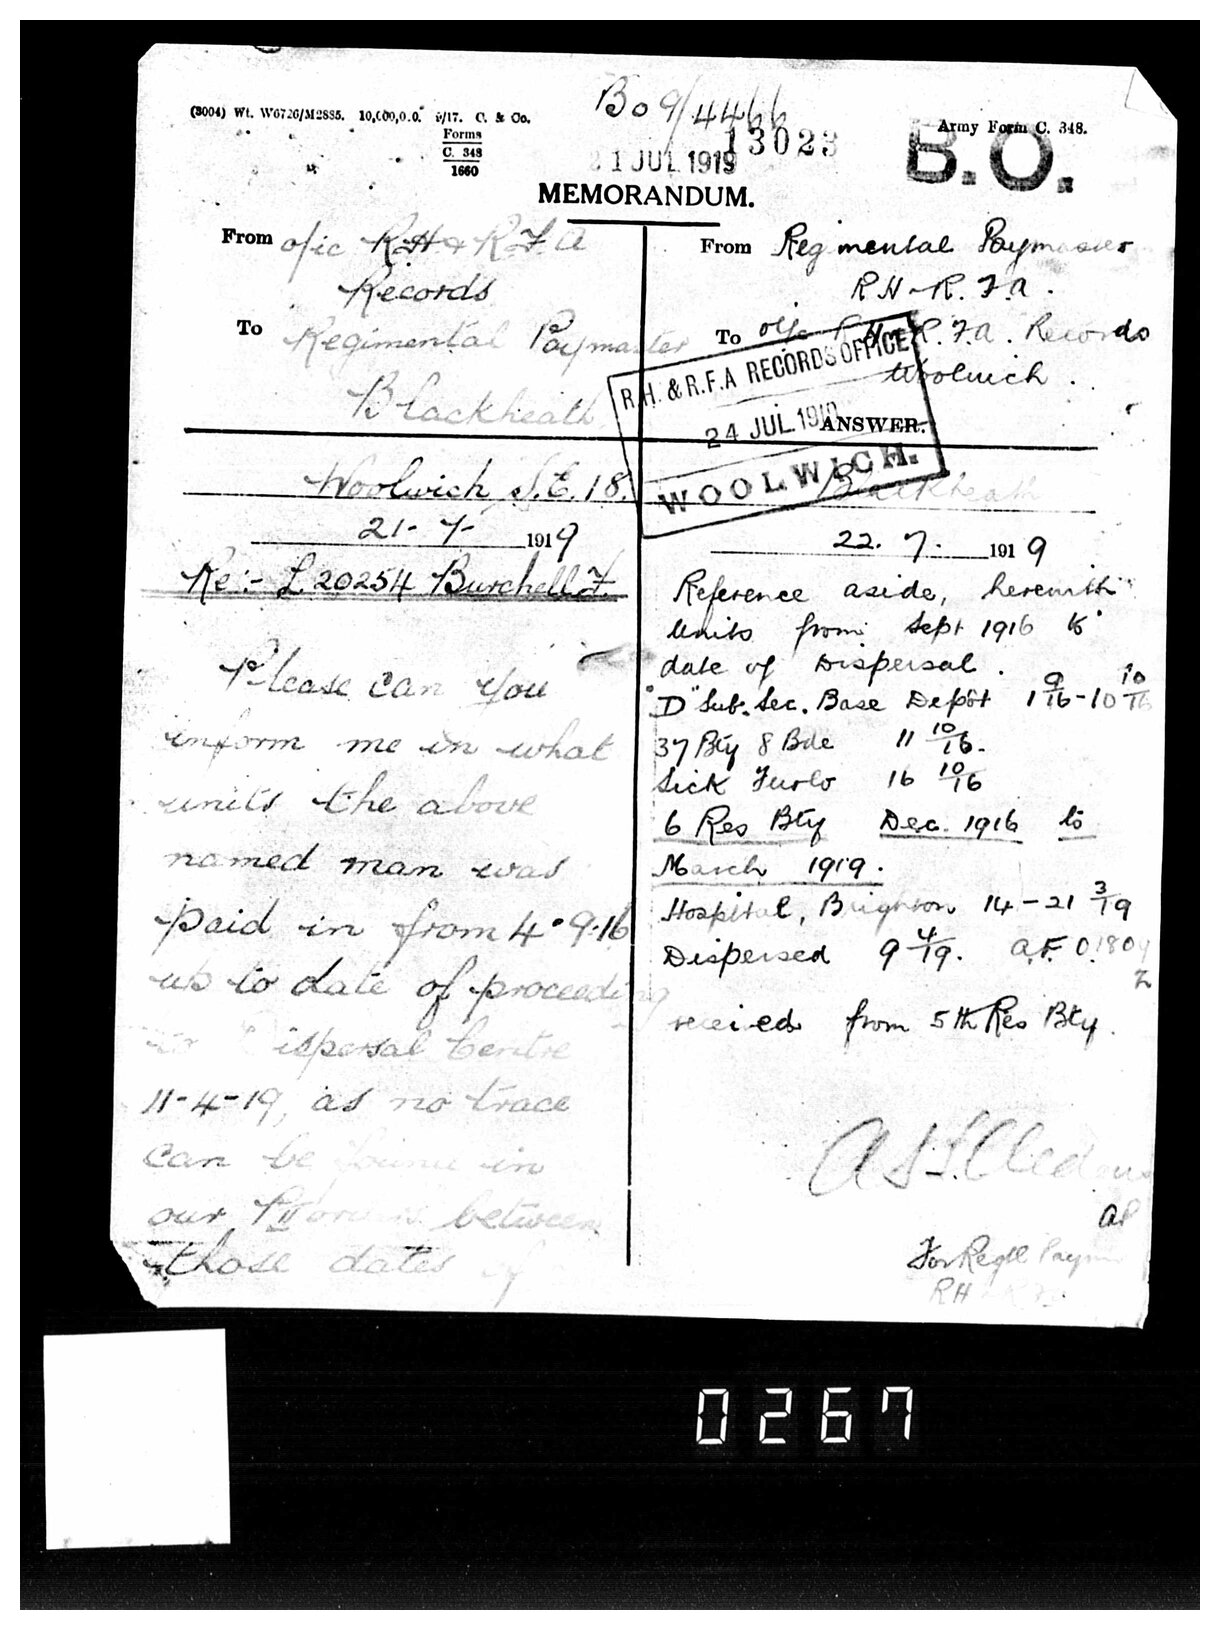 (3004) Wt. W6726/M2885. 10,000,0.0. 9/17. C. & Co.
Forms
C. 348
1660
Bo 9/4466
13023
21 JUL 1919
Army Form C. 348.
B.O.
MEMORANDUM.
From o/ic RH & R.F.A
Records
To Regimental Paymaster
Blackheath
Woolwich S.E. 18.
21-7- 1919
Re:- L 20254 Burchell F.
Please can you
inform me in what
units the above
named man was
paid in from 4.9.16
up to date of proceeding
to Dispersal Centre
11-4-19, as no trace
can be found in
our between
those dates
From Regimental Paymaster
RH - R.F.A.
To o/ic RH - R.F.A. Records
Woolwich.
R.H. & R.F.A RECORDS OFFICE
24 JUL.1919
WOOLWICH.
ANSWER.
Blackheath
22.7. 1919
Reference aside, herewith
Units from Sept 1916 to
date of Dispersal.
"D" Sub. Sec. Base Depôt 1 9/16 - 10 10/16
37 Bty 8 Bde 11 10/16.
Sick Furlo 16 10/16
6 Res Bty Dec. 1916 to
March 1919.
Hospital, Brighton 14 - 21 3/19
Dispersed 9 4/19. A.F. O.1809
Z
received from 5th Res Bty.
AP
For Regtl Paym
RH
0267